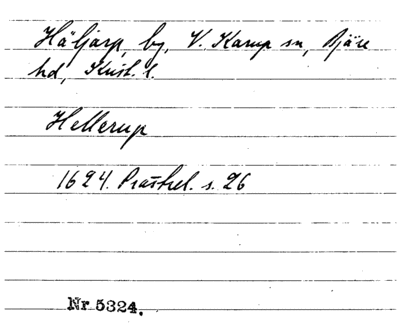 Häljarp, by, V. Karup sn, Bjäre
hd, Krist. l.
Hellerup
1624. Prästrel. s. 26
Nr 5324.